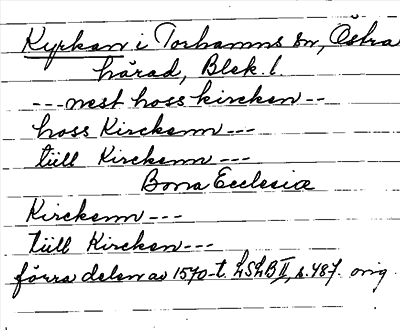 Kyrkan i Torhamns sn, Östra
härad, Blek. l.
---nest hoss kircken--
hoss Kirckenn---
tüll Kirckenn---
Bona Ecclesiæ
Kirckenn---
tüll Kircken---
förra delen av 1570-t. LSLB II, s. 487. orig.